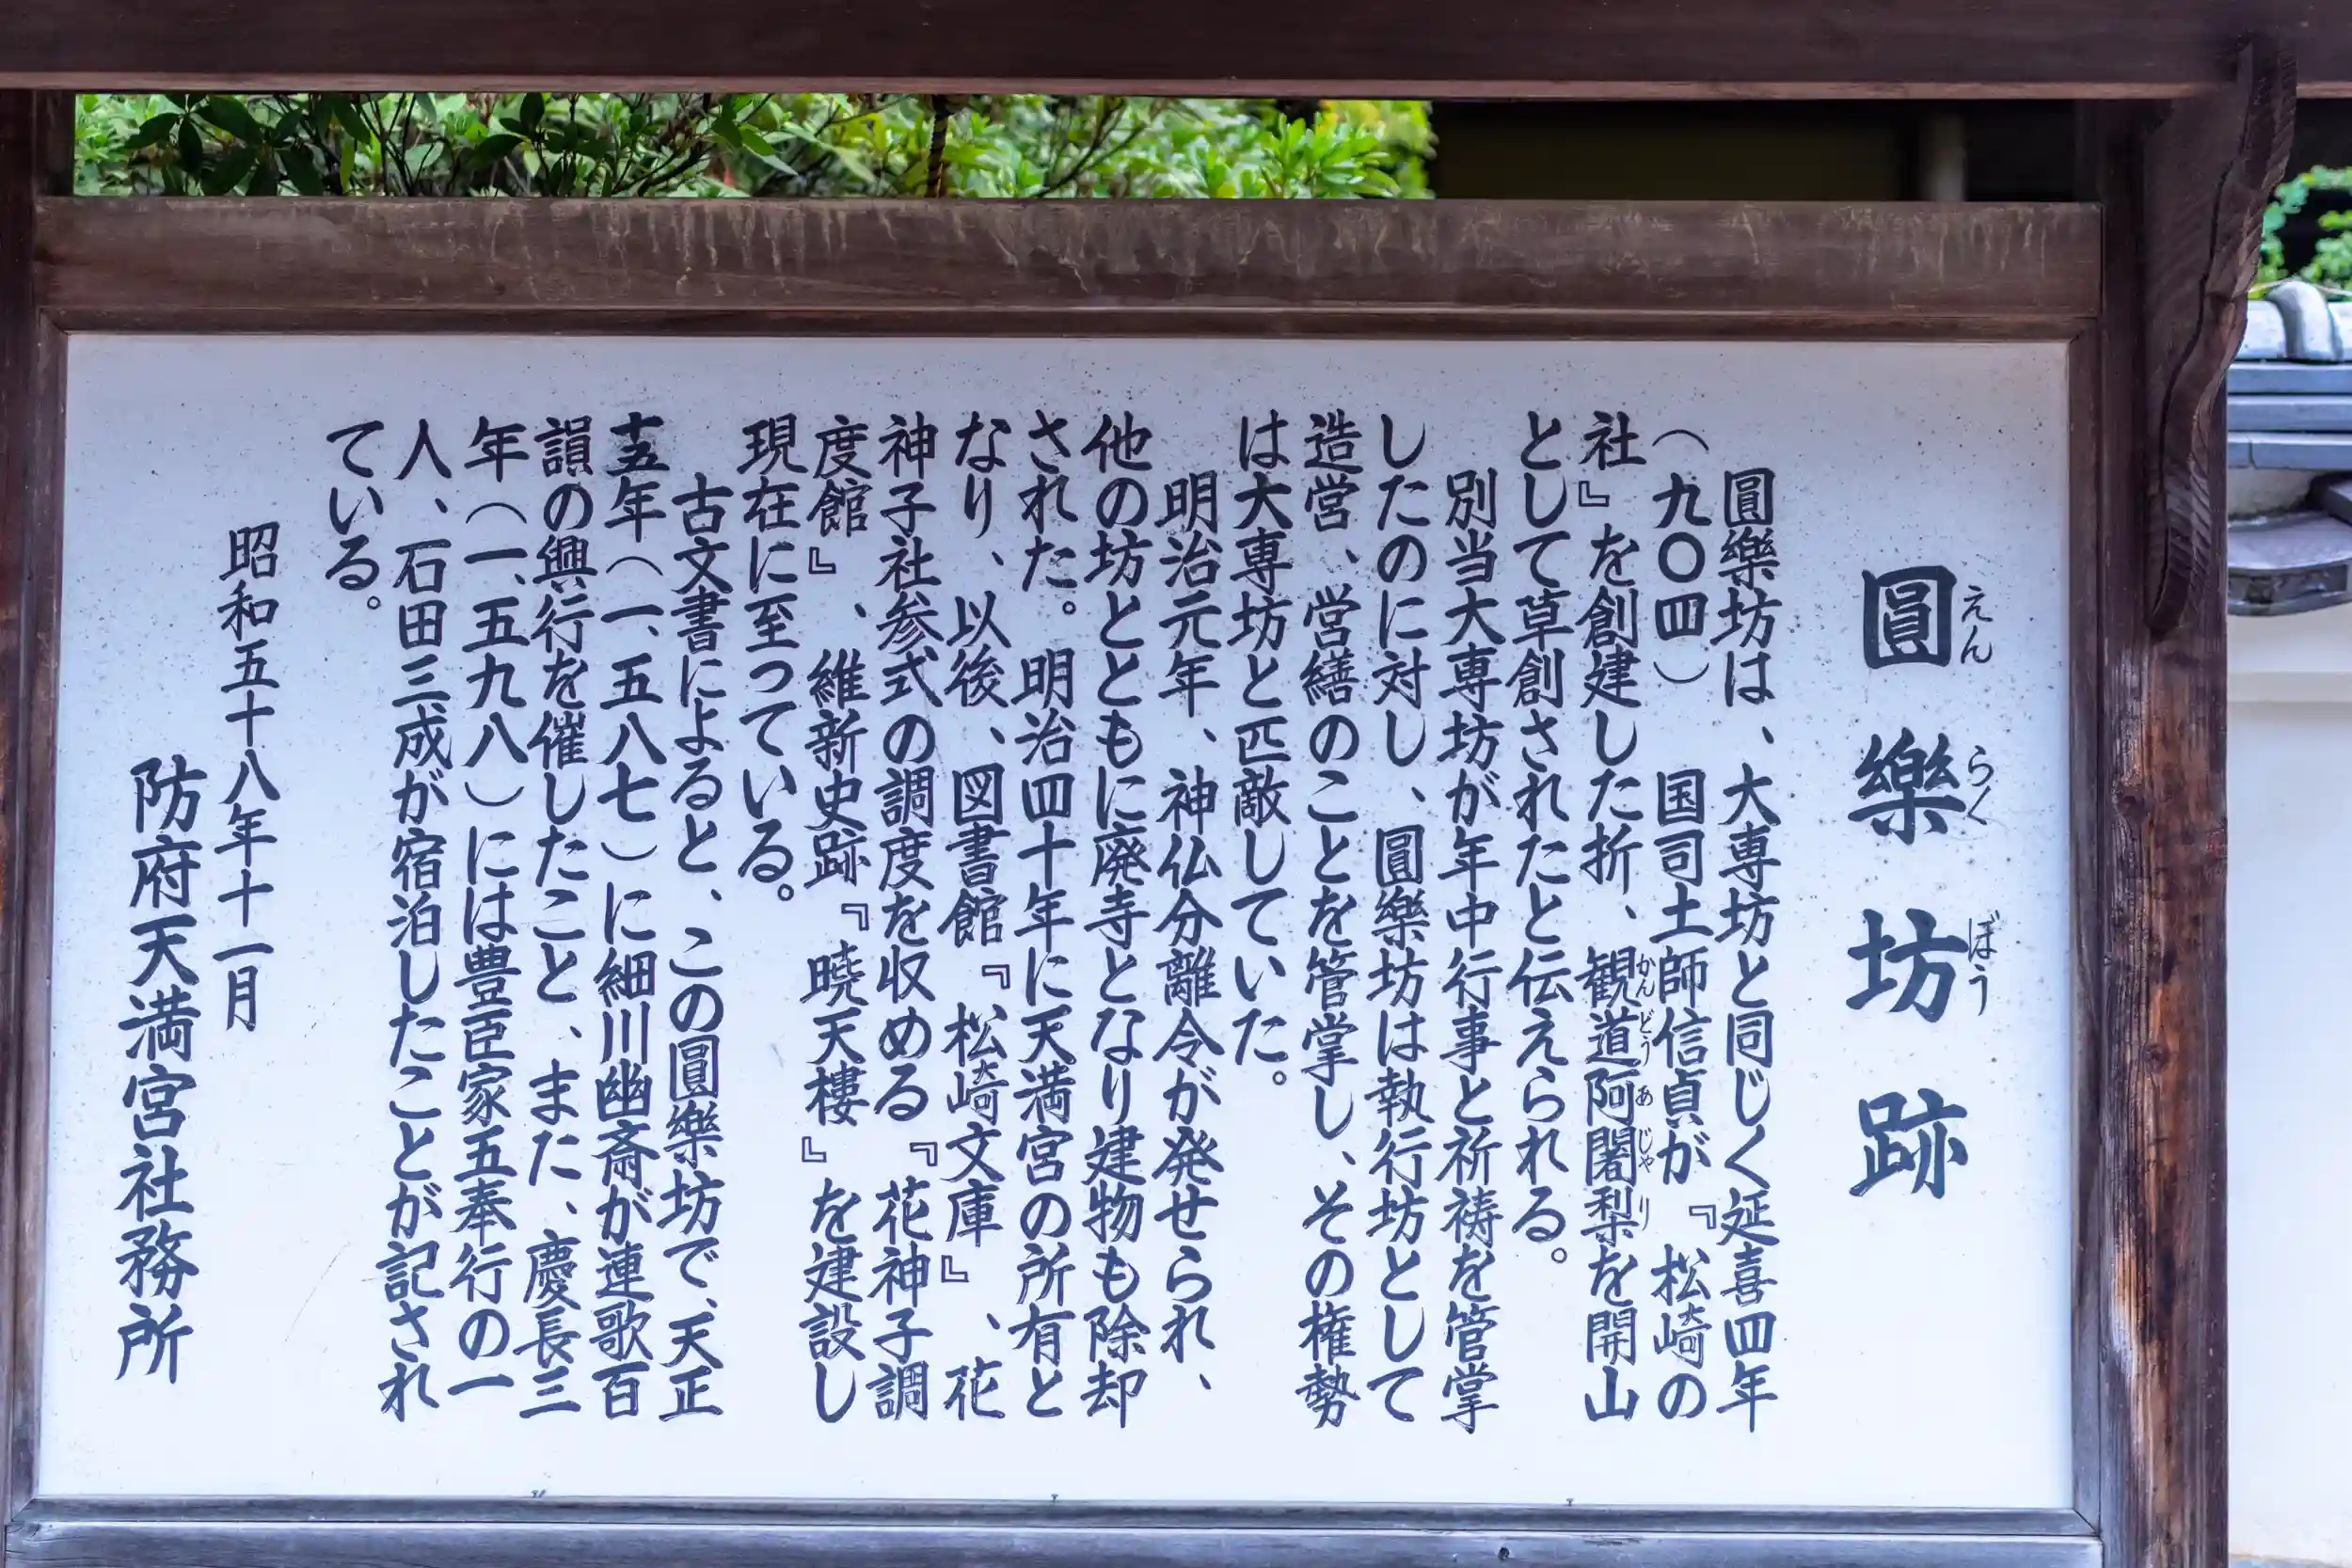 圓樂坊跡
えんらくぼう
圓樂坊は、大専坊と同じく延喜四年
（九〇四）国司土師信貞が『松崎の
社』を創建した折、観道阿闍梨を開山
かんどうあじゃり
として草創されたと伝えられる。
別当大専坊が年中行事と祈祷を管掌
したのに対し、圓樂坊は執行坊として
造営、営繕のことを管掌し、その権勢
は大専坊と匹敵していた。
明治元年、神仏分離令が発せられ、
他の坊とともに廃寺となり建物も除却
された。明治四十年に天満宮の所有と
なり、以後、図書館『松崎文庫』、花
神子社参式の調度を収める『花神子調
度館』、維新史跡『暁天樓』を建設し
現在に至っている。
古文書によると、この圓樂坊で、天正
十五年（一、五八七）に細川幽斎が連歌百
韻の興行を催したこと、また、慶長三
年（一、五九八）には豊臣家五奉行の一
人、石田三成が宿泊したことが記され
ている。
昭和五十八年十一月
防府天満宮社務所